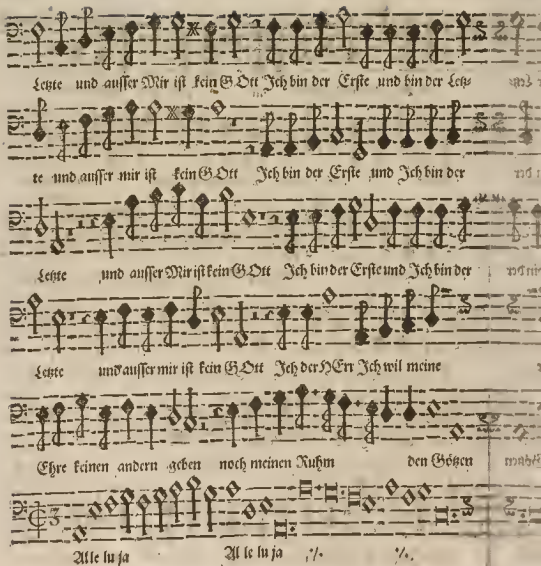 Letzte und ausser Mir ist kein GOtt Ich bin der Erste und bin der Letz
te und ausser mir ist kein GOtt Ich bin der Erste und Ich bin der
Letzte und ausser Mir ist kein GOtt Ich bin der Erste und Ich bin der
Letzte und ausser mir ist kein GOtt Ich der HErr Ich wil meine
Ehre keinen andern geben noch meinen Ruhm den Götzen
Alle lu ja Al le lu ja ·/. ·/.